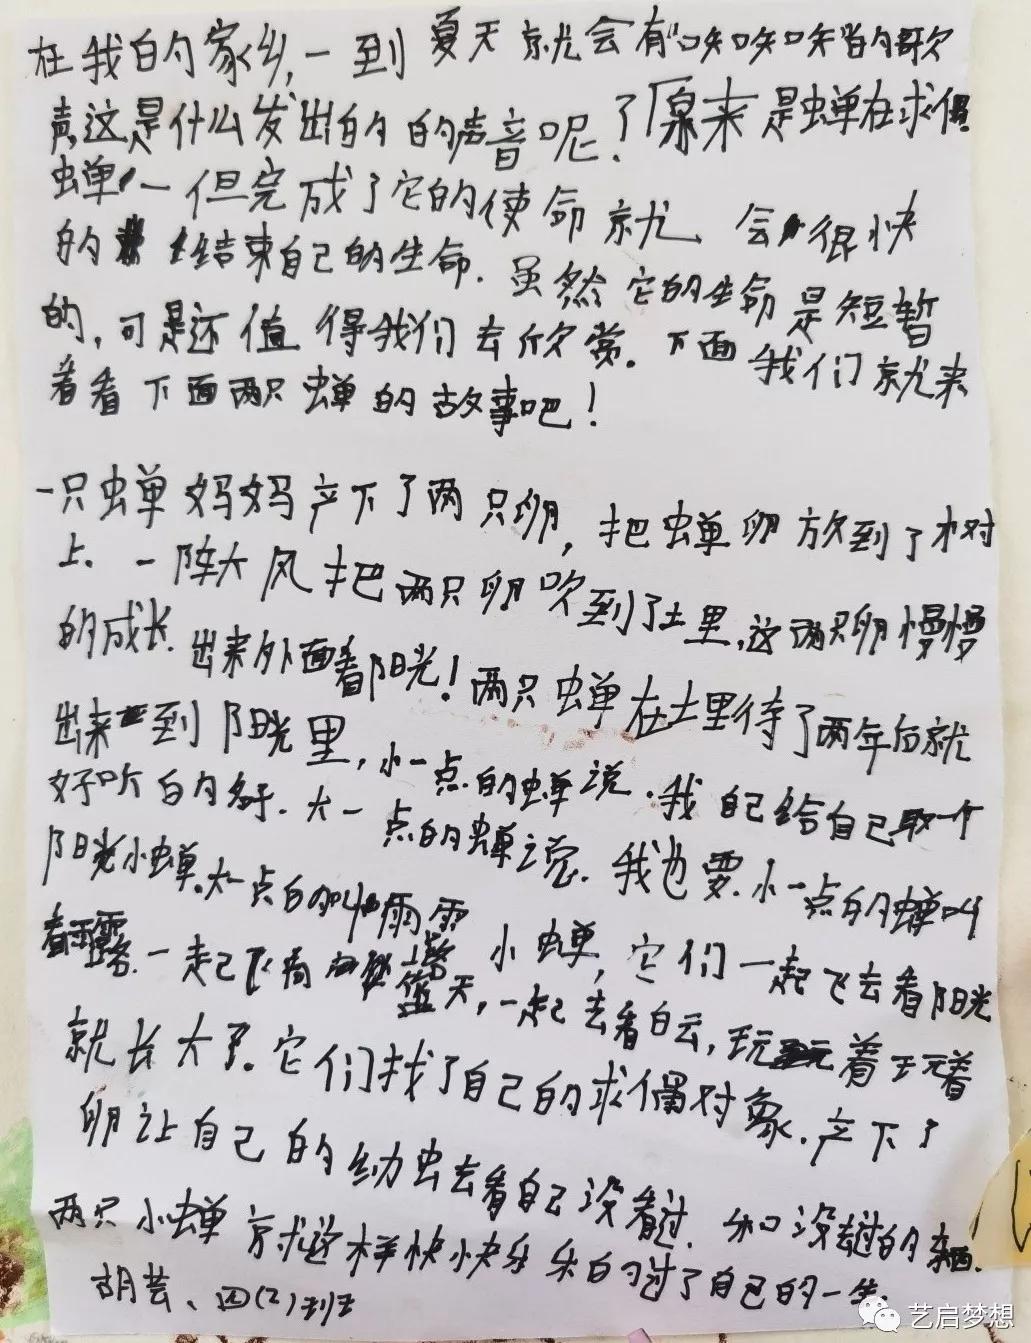 在我的家乡,一到夏天就会有"吱吱吱"的歌
声,这是什么发出的的声音呢?原来是蝉在求偶
蝉一但完成了它的使命就会很快
的结束自己的生命.虽然它的生命是短暂
的,可是还值得我们去欣赏.下面我们就来
看看下面两只蝉的故事吧!
一只蝉妈妈产下了两只卵,把蝉卵放到了树
上.一阵大风把两只卵吹到了土里,这两只卵慢慢
的成长.出来外面看阳光!两只蝉在土里待了两年后就
出来到阳光里,小一点的蝉说.我自己给自己取一个
好听的名子.大一点的蝉说.我也要.小一点的蝉叫
阳光小蝉.大一点的叫雨露小蝉,它们一起飞去看阳光
看雨露.一起飞向蓝天,一起去看白云,玩着玩着
就长大了.它们找了自己的求偶对象.产下了
卵让自己的幼虫去看自己没看过.和没去过的东西.
两只小蝉就这样快快乐乐的过了自己的一生.
胡芸、四(2)班
艺启梦想